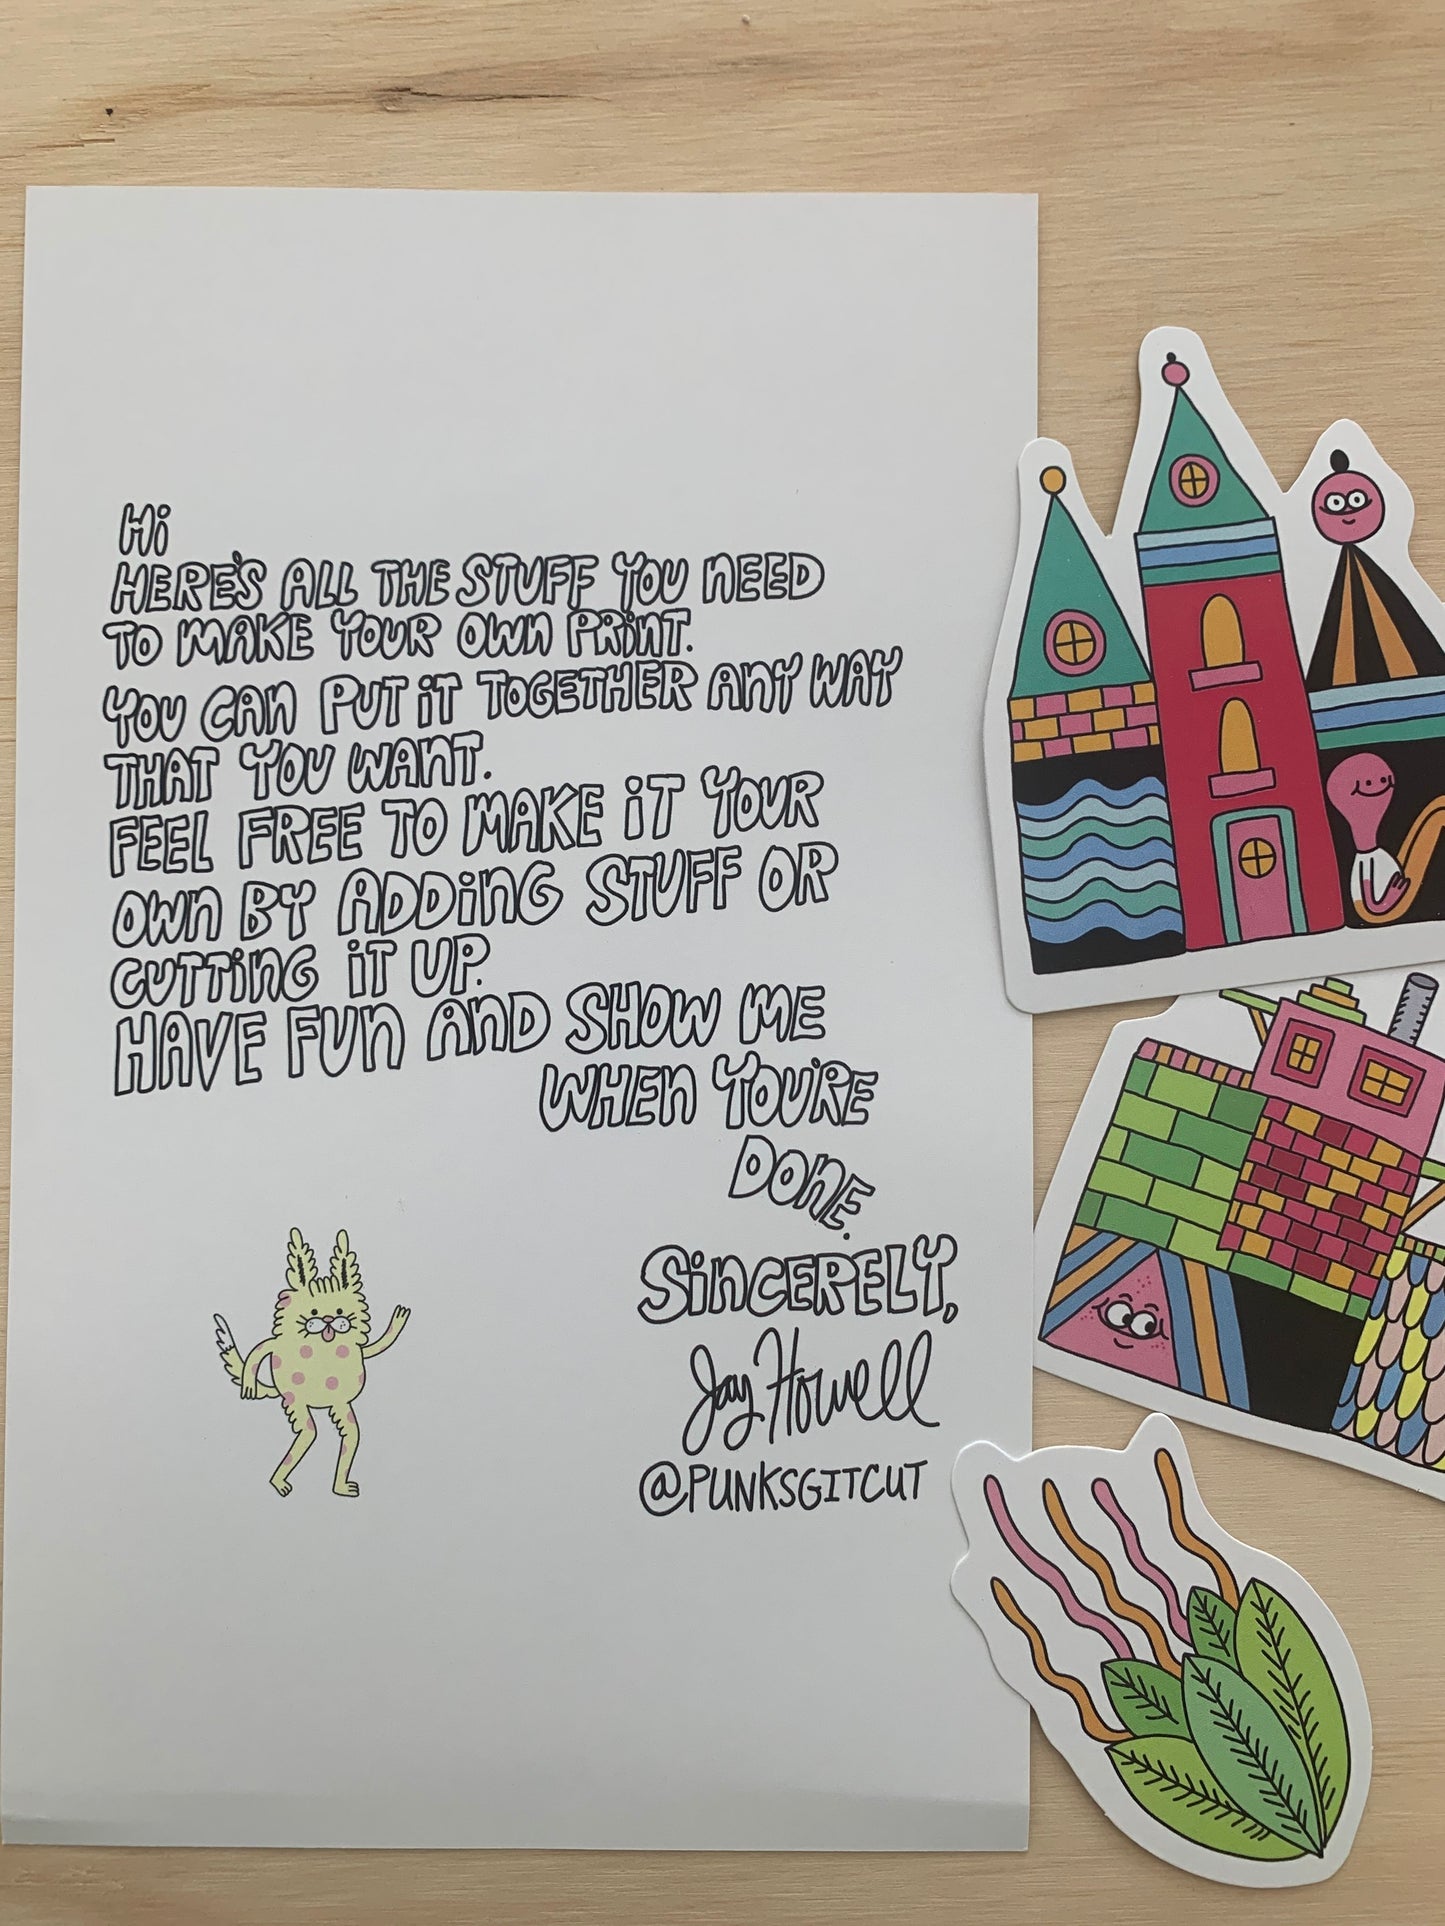 Hi
HERE'S ALL THE STUFF YOU NEED
TO MAKE YOUR OWN PRiNT.
YOU CAN PUT iT TOGETHER ANY WAY
THAT YOU WANT.
FEEL FREE TO MAKE iT YOUR
OWN BY ADDiNG STUFF OR
CUTTiNG iT UP.
HAVE FUN AND SHOW ME
WHEN YOU'RE
DONE.
SiNCERELY,
Jay Howell
@PUNKSGITCUT